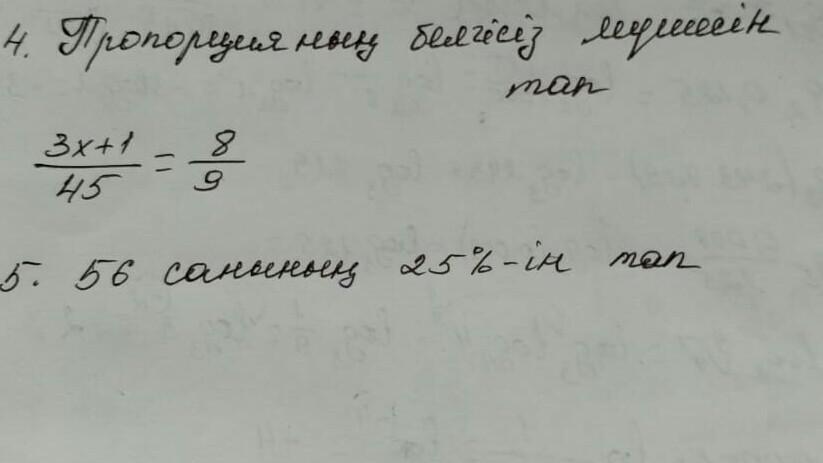 4. Пропорцияның белгісіз мүшесін
тап
(3x+1)/45 = 8/9
5. 56 санының 25%-ін тап